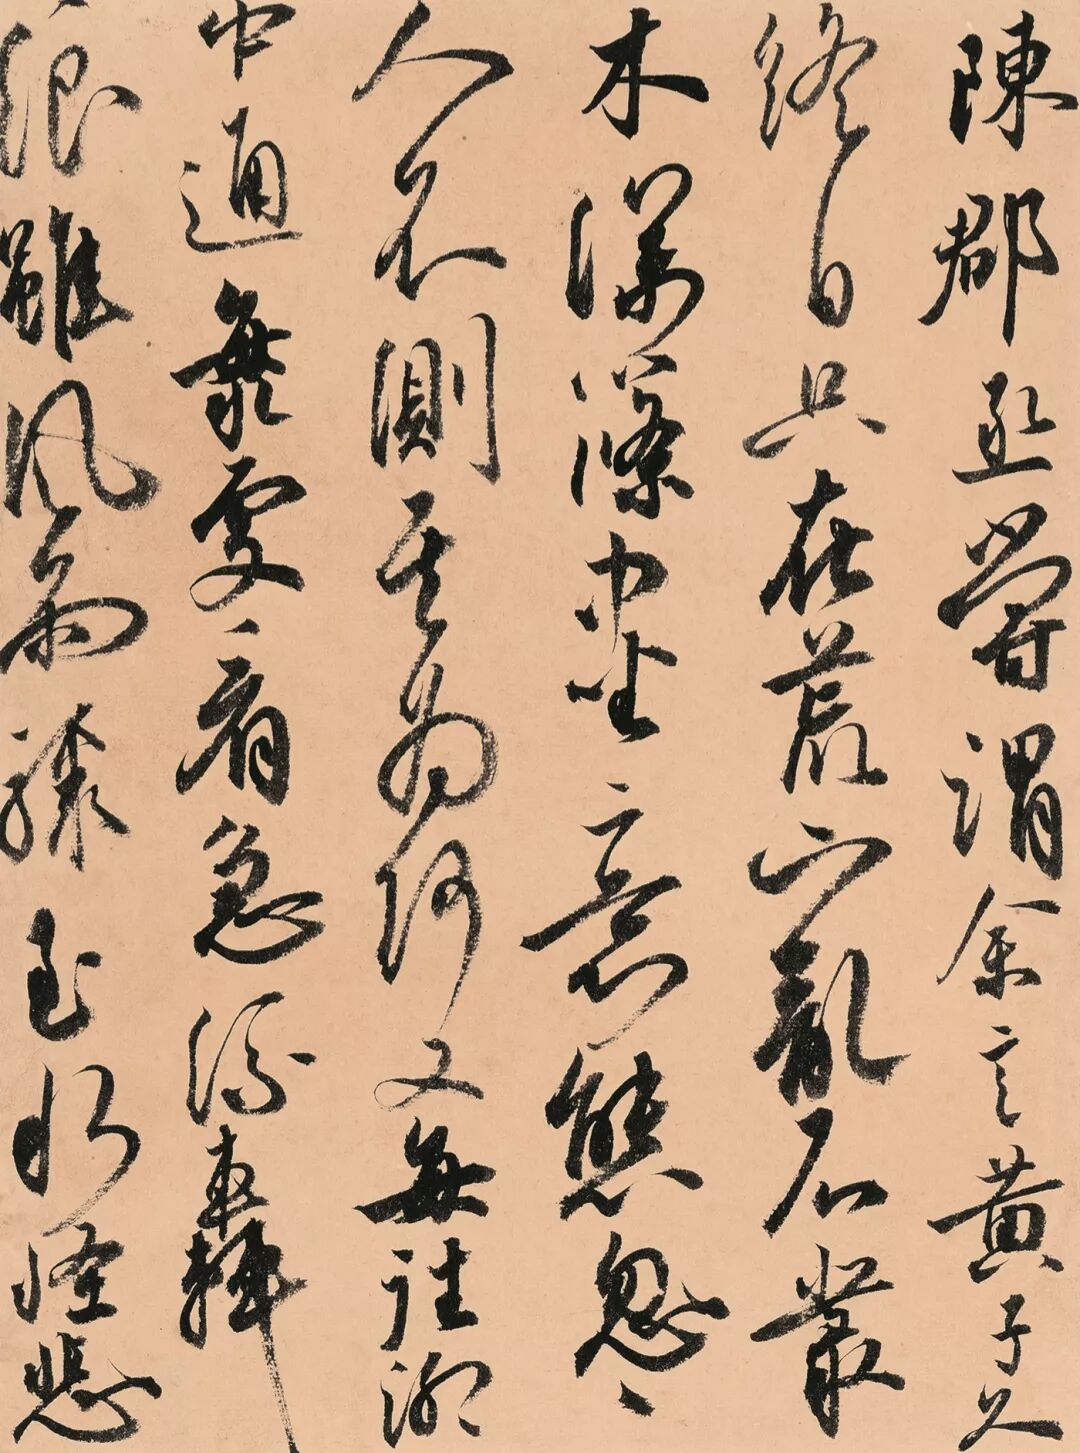 陳郡丞嘗謂余言黄子久
終日只在荒山亂石叢
木深篠中坐意態忽〻
人不測其為何又每往泖
中通海處看急流轟
浪雖風雨驟至水怪悲